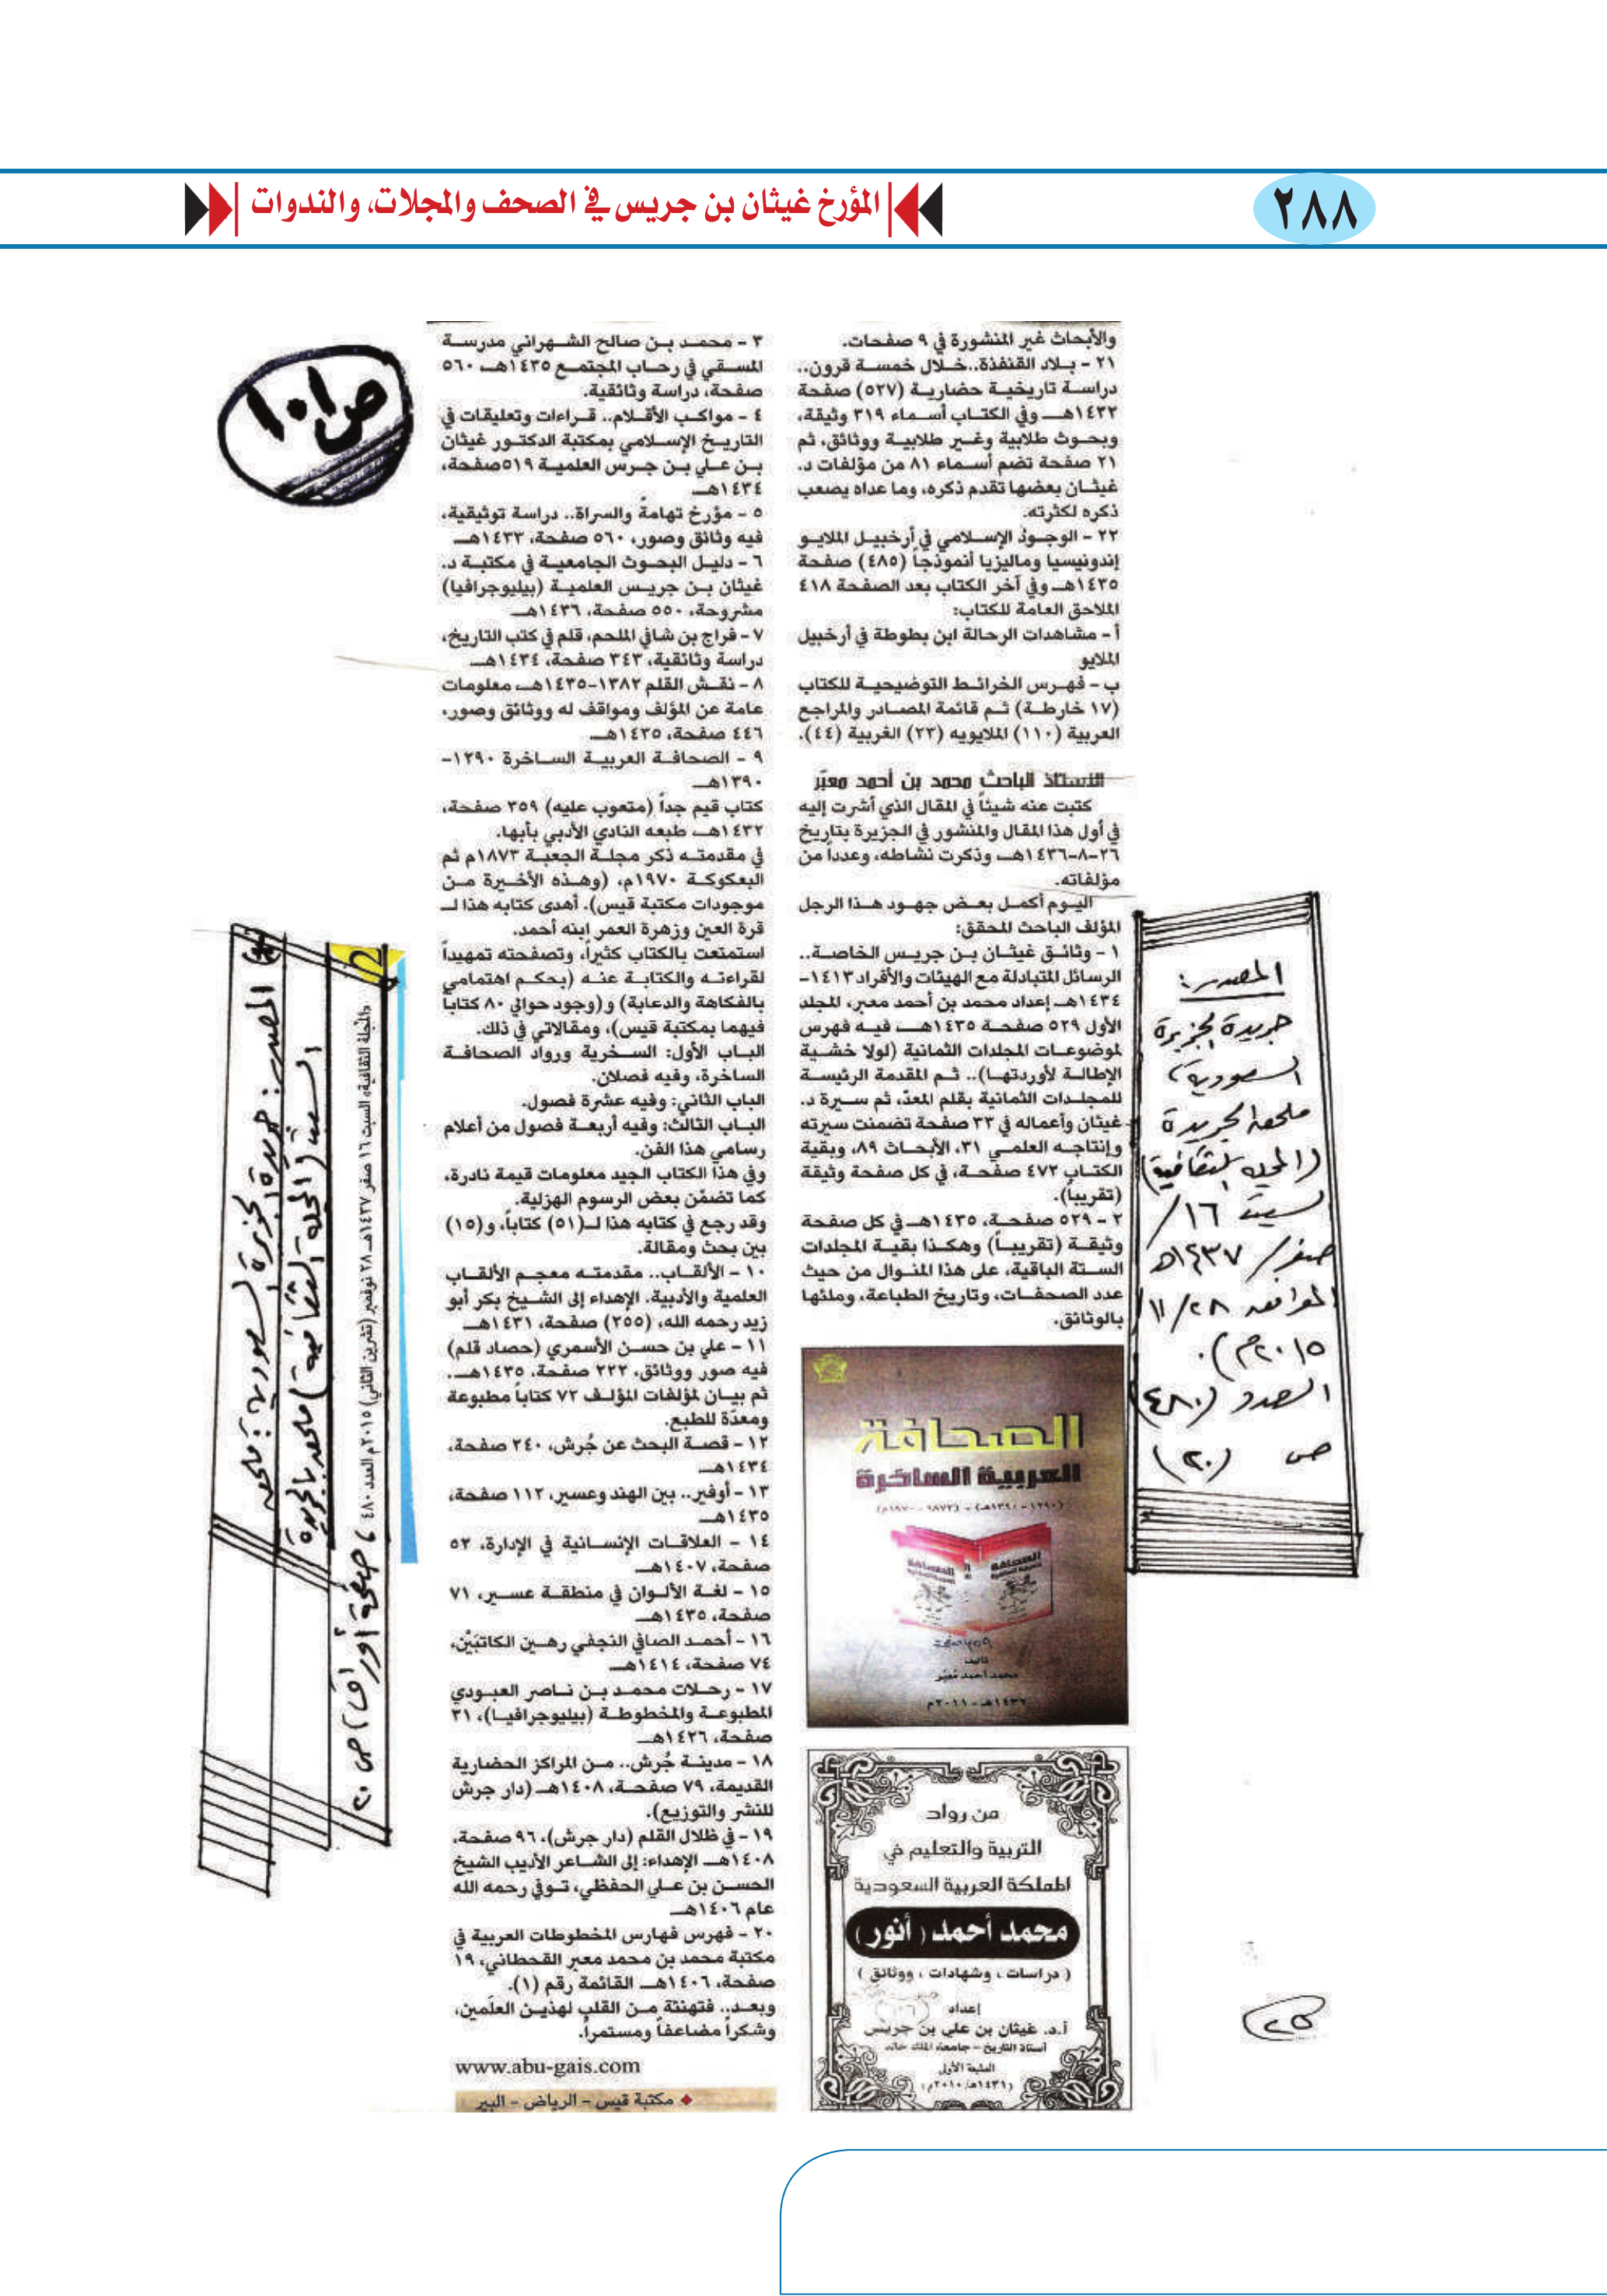 ٢٨٨
المؤرخ غيثان بن جريس في الصحف والمجلات، والندوات
والأبحاث غير المنشورة في ٩ صفحات.
٢١ - بلاد القنفذة..خلال خمسة قرون..
دراسة تاريخية حضارية (٥٢٧) صفحة
١٤٣٢هـ وفي الكتاب أسماء ٣١٩ وثيقة،
وبحوث طلابية وغير طلابية ووثائق، ثم
٢١ صفحة تضم أسماء ٨١ من مؤلفات د.
غيثان بعضها تقدم ذكره، وما عداه يصعب
ذكره لكثرته.
٢٢ - الوجود الإسلامي في أرخبيل الملايو
إندونيسيا وماليزيا أنموذجاً (٤٨٥) صفحة
١٤٣٥هـ وفي آخر الكتاب بعد الصفحة ٤١٨
الملاحق العامة للكتاب:
أ - مشاهدات الرحالة ابن بطوطة في أرخبيل
الملايو
ب - فهرس الخرائط التوضيحية للكتاب
(١٧ خارطة) ثم قائمة المصادر والمراجع
العربية (١١٠) الملايويه (٢٣) الغربية (٤٤).
الأستاذ الباحث محمد بن أحمد معبّر
كتبت عنه شيئاً في المقال الذي أشرت إليه
في أول هذا المقال والمنشور في الجزيرة بتاريخ
٢٦-٨-١٤٣٦هـ وذكرت نشاطه، وعدداً من
مؤلفاته.
اليوم أكمل بعض جهود هذا الرجل
المؤلف الباحث المحقق:
١ - وثائق غيثان بن جريس الخاصة..
الرسائل المتبادلة مع الهيئات والأفراد ١٤١٣-
١٤٣٤هـ إعداد محمد بن أحمد معبر، المجلد
الأول ٥٢٩ صفحة ١٤٣٥هـ فيه فهرس
لموضوعات المجلدات الثمانية (لولا خشية
الإطالة لأوردتها).. ثم المقدمة الرئيسة
للمجلدات الثمانية بقلم المعدّ، ثم سيرة د.
غيثان وأعماله في ٣٣ صفحة تضمنت سيرته
وإنتاجه العلمي ٣١، الأبحاث ٨٩، وبقية
الكتاب ٤٧٢ صفحة، في كل صفحة وثيقة
(تقريباً).
٢ - ٥٢٩ صفحة، ١٤٣٥هـ في كل صفحة
وثيقة (تقريباً) وهكذا بقية المجلدات
الستة الباقية، على هذا المنوال من حيث
عدد الصفحات، وتاريخ الطباعة، وملئها
بالوثائق.
الصحافة
العربية الساخرة
(١٢٩٠ - ١٣٩٠هـ) - (١٨٧٣ - ١٩٧٠م)
٣٥٩ صفحة
تأليف
محمد أحمد مُعبّر
١٤٣٢هـ - ٢٠١١م
من رواد
التربية والتعليم في
المملكة العربية السعودية
محمد أحمد (أنور)
(دراسات، وشهادات، ووثائق)
إعداد
أ.د. غيثان بن علي بن جريس
أستاذ التاريخ - جامعة الملك خالد
الطبعة الأولى
(١٤٣١هـ/٢٠١٠م)
٣ - محمد بن صالح الشهراني مدرسة
المسقي في رحاب المجتمع ١٤٣٥هـ، ٥٦٠
صفحة، دراسة وثائقية.
٤ - مواكب الأقلام.. قراءات وتعليقات في
التاريخ الإسلامي بمكتبة الدكتور غيثان
بن علي بن جرس العلمية ٥١٩صفحة،
١٤٣٤هـ
٥ - مؤرخ تهامة والسراة.. دراسة توثيقية،
فيه وثائق وصور، ٥٦٠ صفحة، ١٤٣٣هـ
٦ - دليل البحوث الجامعية في مكتبة د.
غيثان بن جريس العلمية (بيليوجرافيا)
مشروحة، ٥٥٠ صفحة، ١٤٣٦هـ
٧ - فراج بن شافي الملحم، قلم في كتب التاريخ،
دراسة وثائقية، ٣٤٣ صفحة، ١٤٣٤هـ
٨ - نقش القلم ١٣٨٢-١٤٣٥هـ، معلومات
عامة عن المؤلف ومواقف له ووثائق وصور،
٤٤٦ صفحة، ١٤٣٥هـ
٩ - الصحافة العربية الساخرة ١٢٩٠-
١٣٩٠هـ
كتاب قيم جداً (متعوب عليه) ٣٥٩ صفحة،
١٤٣٢هـ طبعه النادي الأدبي بأبها.
في مقدمته ذكر مجلة الجعبة ١٨٧٣م ثم
البعكوكة ١٩٧٠م، (وهذه الأخيرة من
موجودات مكتبة قيس). أهدى كتابه هذا لـ
قرة العين وزهرة العمر إبنه أحمد.
استمتعت بالكتاب كثيراً، وتصفحته تمهيداً
لقراءته والكتابة عنه (بحكم اهتمامي
بالفكاهة والدعابة) و(وجود حوالي ٨٠ كتاباً
فيهما بمكتبة قيس)، ومقالاتي في ذلك.
الباب الأول: السخرية ورواد الصحافة
الساخرة، وفيه فصلان.
الباب الثاني: وفيه عشرة فصول.
الباب الثالث: وفيه أربعة فصول من أعلام
رسامي هذا الفن.
وفي هذا الكتاب الجيد معلومات قيمة نادرة،
كما تضمّن بعض الرسوم الهزلية.
وقد رجع في كتابه هذا لـ(٥١) كتاباً، و(١٥)
بين بحث ومقالة.
١٠ - الألقاب.. مقدمته معجم الألقاب
العلمية والأدبية. الإهداء إلى الشيخ بكر أبو
زيد رحمه الله، (٢٥٥) صفحة، ١٤٣١هـ
١١ - علي بن حسن الأسمري (حصاد قلم)
فيه صور ووثائق، ٢٢٢ صفحة، ١٤٣٥هـ.
ثم بيان لمؤلفات المؤلف ٧٢ كتاباً مطبوعة
ومعدّة للطبع.
١٢ - قصة البحث عن جُرش، ٢٤٠ صفحة،
١٤٣٤هـ
١٣ - أوفير.. بين الهند وعسير، ١١٢ صفحة،
١٤٣٥هـ
١٤ - العلاقات الإنسانية في الإدارة، ٥٢
صفحة، ١٤٠٧هـ
١٥ - لغة الألوان في منطقة عسير، ٧١
صفحة، ١٤٣٥هـ
١٦ - أحمد الصافي النجفي رهين الكاتبَيْن،
٧٤ صفحة، ١٤١٤هـ
١٧ - رحلات محمد بن ناصر العبودي
المطبوعة والمخطوطة (بيليوجرافيا)، ٣١
صفحة، ١٤٢٦هـ
١٨ - مدينة جُرش.. من المراكز الحضارية
القديمة، ٧٩ صفحة، ١٤٠٨هـ (دار جرش
للنشر والتوزيع).
١٩ - في ظلال القلم (دار جرش)، ٩٦ صفحة،
١٤٠٨هـ الإهداء: إلى الشاعر الأديب الشيخ
الحسن بن علي الحفظي، توفي رحمه الله
عام ١٤٠٦هـ
٢٠ - فهرس فهارس المخطوطات العربية في
مكتبة محمد بن محمد معبر القحطاني، ١٩
صفحة، ١٤٠٦هـ القائمة رقم (١).
وبعد.. فتهنئة من القلب لهذين العلَمين،
وشكراً مضاعفاً ومستمراً.
www.abu-gais.com
مكتبة قيس - الرياض - البير
المصدر:
جريدة الجزيرة
السعودية،
ملحق الجريدة
(المجلة الثقافية)
السبت ١٦/
صفر/ ١٤٣٧هـ
الموافق ٢٨/١١/
٢٠١٥م).
العدد (٤٨٠)
ص (٢٠)
ص١٠١
المصدر: جريدة الجزيرة السعودية: ملحق
السبت (المجلة الثقافية) ملحق بالجريدة
المجلة الثقافية، السبت ١٦ صفر ١٤٣٧هـ ٢٨ نوفمبر (تشرين الثاني) ٢٠١٥م العدد ٤٨٠
، صفحة أوراق، ص ٢٠
2
٢٥